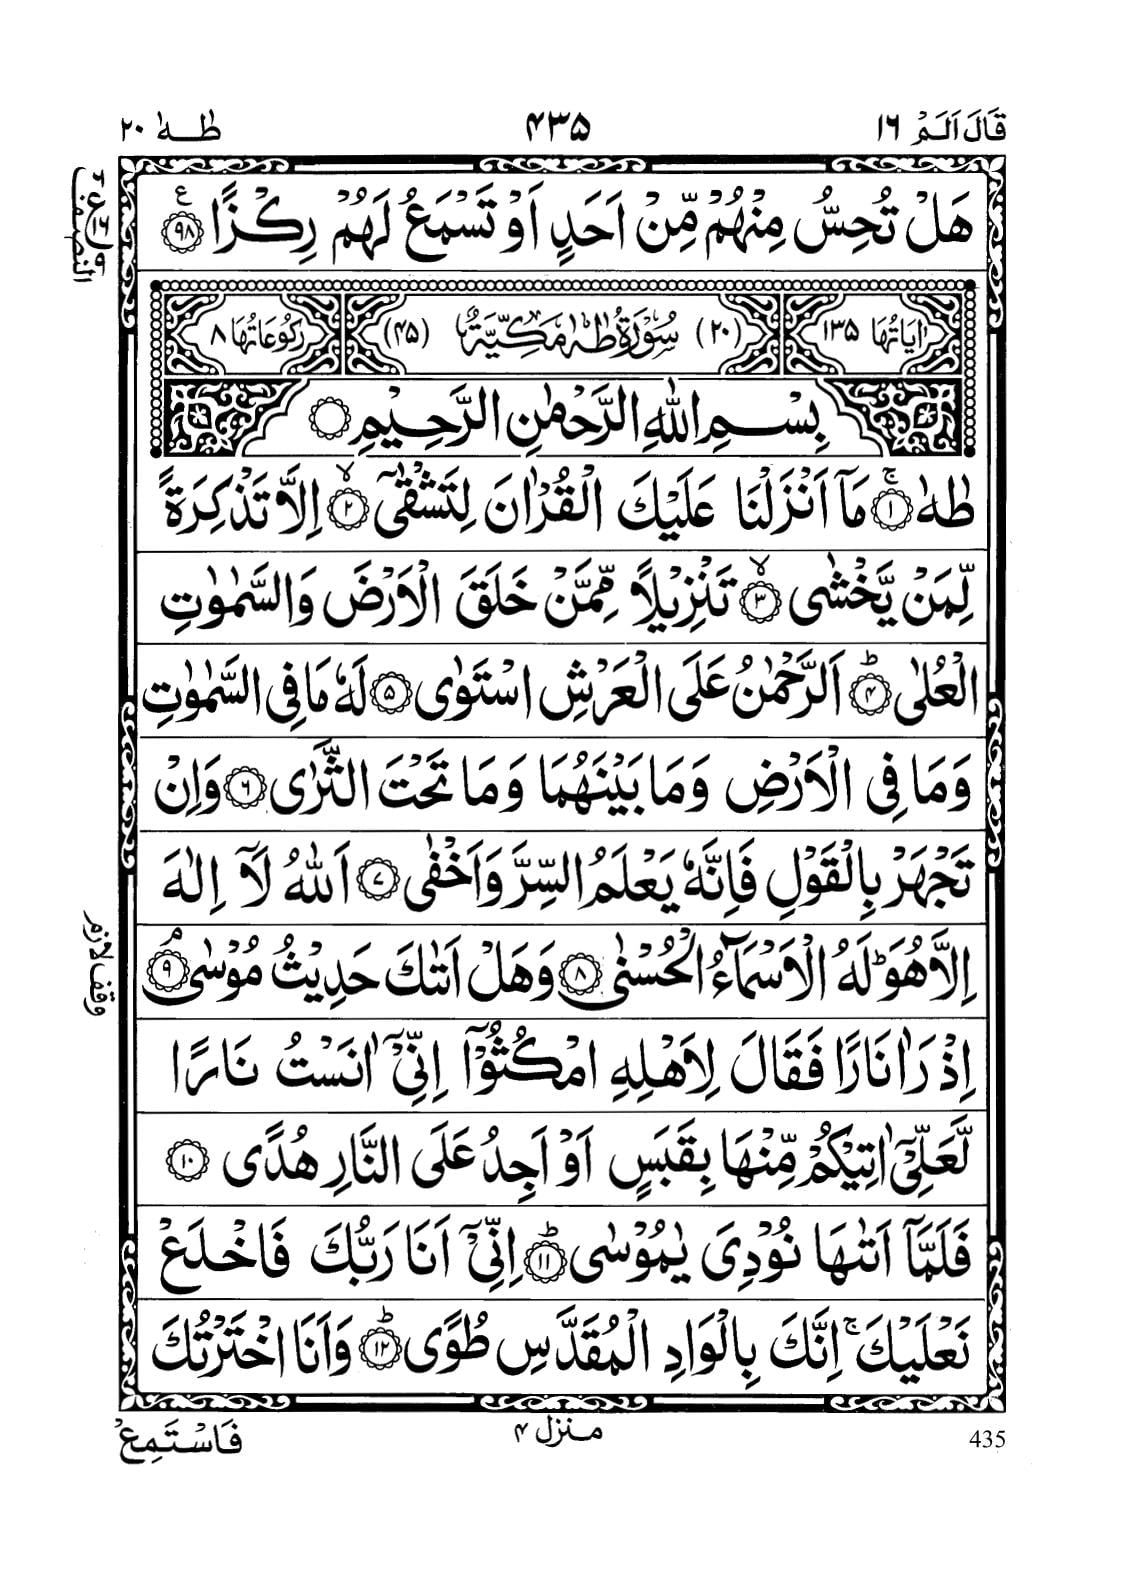 قَالَ اَلَمْ ١٦ ۴۳۵ طٰهٰ ٢٠
هَلْ تُحِسُّ مِنْهُمْ مِّنْ اَحَدٍ اَوْ تَسْمَعُ لَهُمْ رِكْزًا ۹۸ ع
ع ٦ ١٦ ٩
النصف
اٰيَاتُهَا ١٣٥ (٢٠) سُوْرَةُ طٰهٰ مَكِّيَّةٌ (۴۵) رُكُوْعَاتُهَا ٨
بِسْمِ اللّٰهِ الرَّحْمٰنِ الرَّحِيْمِ
طٰهٰ ۚ ١ مَآ اَنْزَلْنَا عَلَيْكَ الْقُرْاٰنَ لِتَشْقٰٓى ۙ ٢ اِلَّا تَذْكِرَةً
لِّمَنْ يَّخْشٰى ۙ ٣ تَنْزِيْلًا مِّمَّنْ خَلَقَ الْاَرْضَ وَالسَّمٰوٰتِ
الْعُلٰى ؕ ۴ اَلرَّحْمٰنُ عَلَى الْعَرْشِ اسْتَوٰى ۵ لَهٗ مَا فِى السَّمٰوٰتِ
وَمَا فِى الْاَرْضِ وَمَا بَيْنَهُمَا وَمَا تَحْتَ الثَّرٰى ۶ وَاِنْ
تَجْهَرْ بِالْقَوْلِ فَاِنَّهٗ يَعْلَمُ السِّرَّ وَاَخْفٰى ۷ اَللّٰهُ لَآ اِلٰهَ
اِلَّا هُوَ ؕ لَهُ الْاَسْمَآءُ الْحُسْنٰى ٨ وَهَلْ اَتٰىكَ حَدِيْثُ مُوْسٰى ۘ ٩
وقف لازم
اِذْ رَاٰ نَارًا فَقَالَ لِاَهْلِهِ امْكُثُوْٓا اِنِّىْٓ اٰنَسْتُ نَارًا
لَّعَلِّىْٓ اٰتِيْكُمْ مِّنْهَا بِقَبَسٍ اَوْ اَجِدُ عَلَى النَّارِ هُدًى ١٠
فَلَمَّآ اَتٰىهَا نُوْدِىَ يٰمُوْسٰى ؕ ١١ اِنِّىْٓ اَنَا رَبُّكَ فَاخْلَعْ
نَعْلَيْكَ ۚ اِنَّكَ بِالْوَادِ الْمُقَدَّسِ طُوًى ؕ ١٢ وَاَنَا اخْتَرْتُكَ
435 منزل ۴ فَاسْتَمِعْ